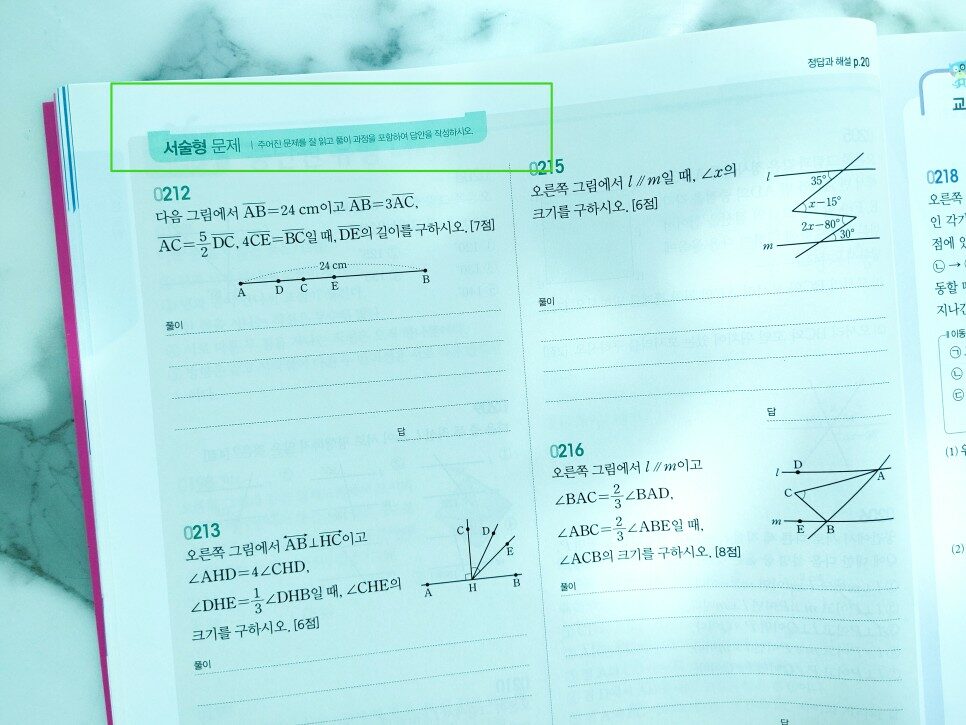 정답과 해설 p.20
서술형 문제 | 주어진 문제를 잘 읽고 풀이 과정을 포함하여 답안을 작성하시오.
0212
다음 그림에서 AB=24 cm이고 AB=3AC,
AC=5/2 DC, 4CE=BC일 때, DE의 길이를 구하시오. [7점]
24 cm
A D C E B
풀이
답
0213
오른쪽 그림에서 AB⊥HC이고
∠AHD=4∠CHD,
∠DHE=1/3∠DHB일 때, ∠CHE의
크기를 구하시오. [6점]
C D E
A H B
풀이
0215
오른쪽 그림에서 l∥m일 때, ∠x의
크기를 구하시오. [6점]
l 35°
x-15°
2x-80°
m 30°
풀이
답
0216
오른쪽 그림에서 l∥m이고
∠BAC=2/3∠BAD,
∠ABC=2/3∠ABE일 때,
∠ACB의 크기를 구하시오. [8점]
l D A
C
m E B
풀이
답
교
0218
오른쪽
인 각기
점에 있
㉡ →
동할 때
지나간
이동
㉠
㉡
㉢
(1)
(2)